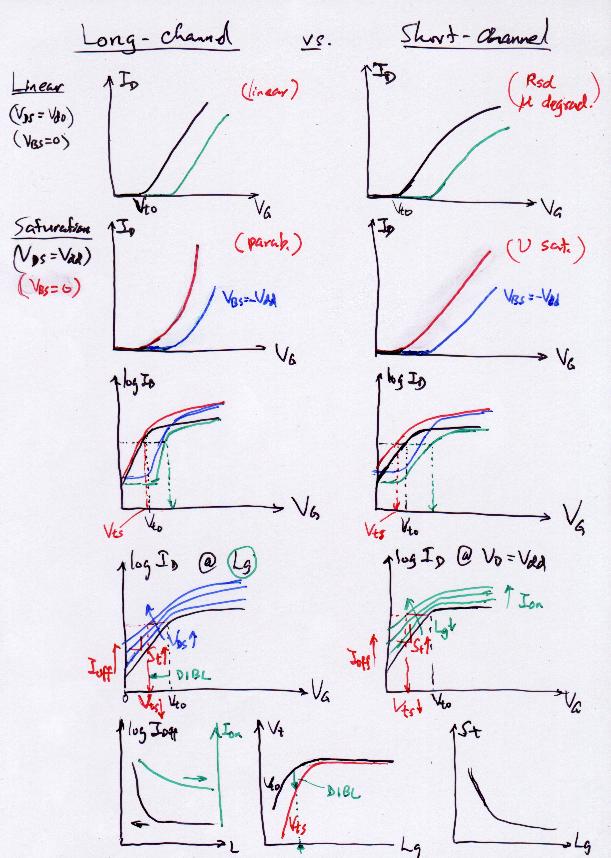 Long-channel vs. Short-channel
Linear
(VDS = Vd0)
(VBS=0)
ID
(linear)
Vto
VG
ID
(Rsd
μ degrad.)
Vto
VG
Saturation
(VDS = Vdd)
(VBS=0)
ID
(parab.)
VBS=-Vdd
VG
ID
(υ sat.)
VBS=-Vdd
VG
log ID
Vts
Vto
VG
log ID
Vts
Vto
VG
log ID @ Lg
VDS↑
St↑
Ioff↑
DIBL
0
Vts↓
Vto
VG
log ID @ VD = Vdd
↑ Ion
Lg↓
St↑
Ioff↑
Vts↓
Vto
VG
log Ioff
Ion
L
Vt
Vto
DIBL
Vts
Lg
St
Lg